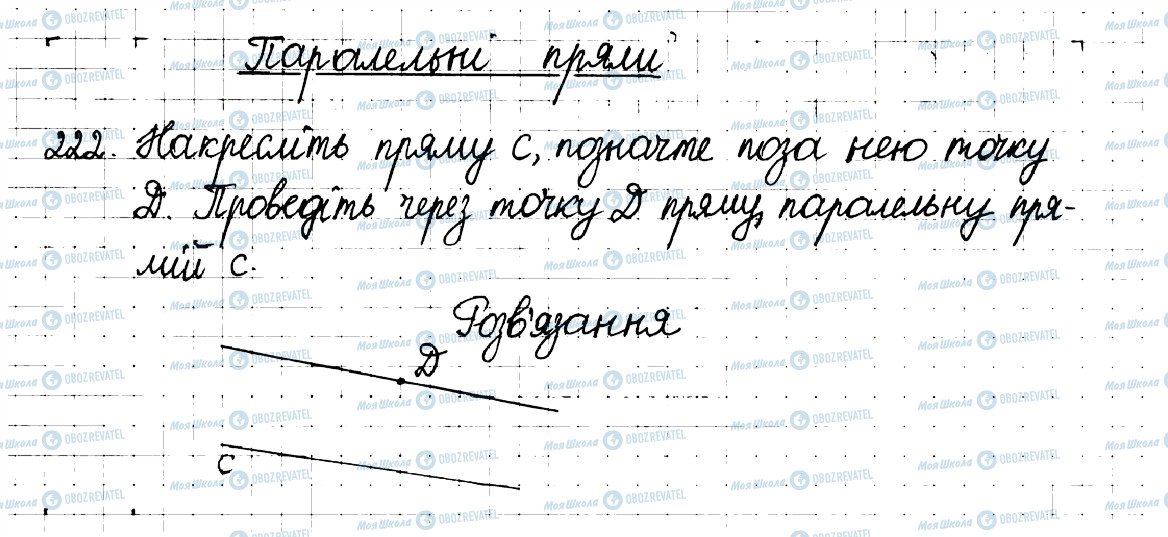 Паралельні прямі
222. Накресліть пряму c, позначте поза нею точку
D. Проведіть через точку D пряму, паралельну пря-
мій c.
Розв'язання
D
c